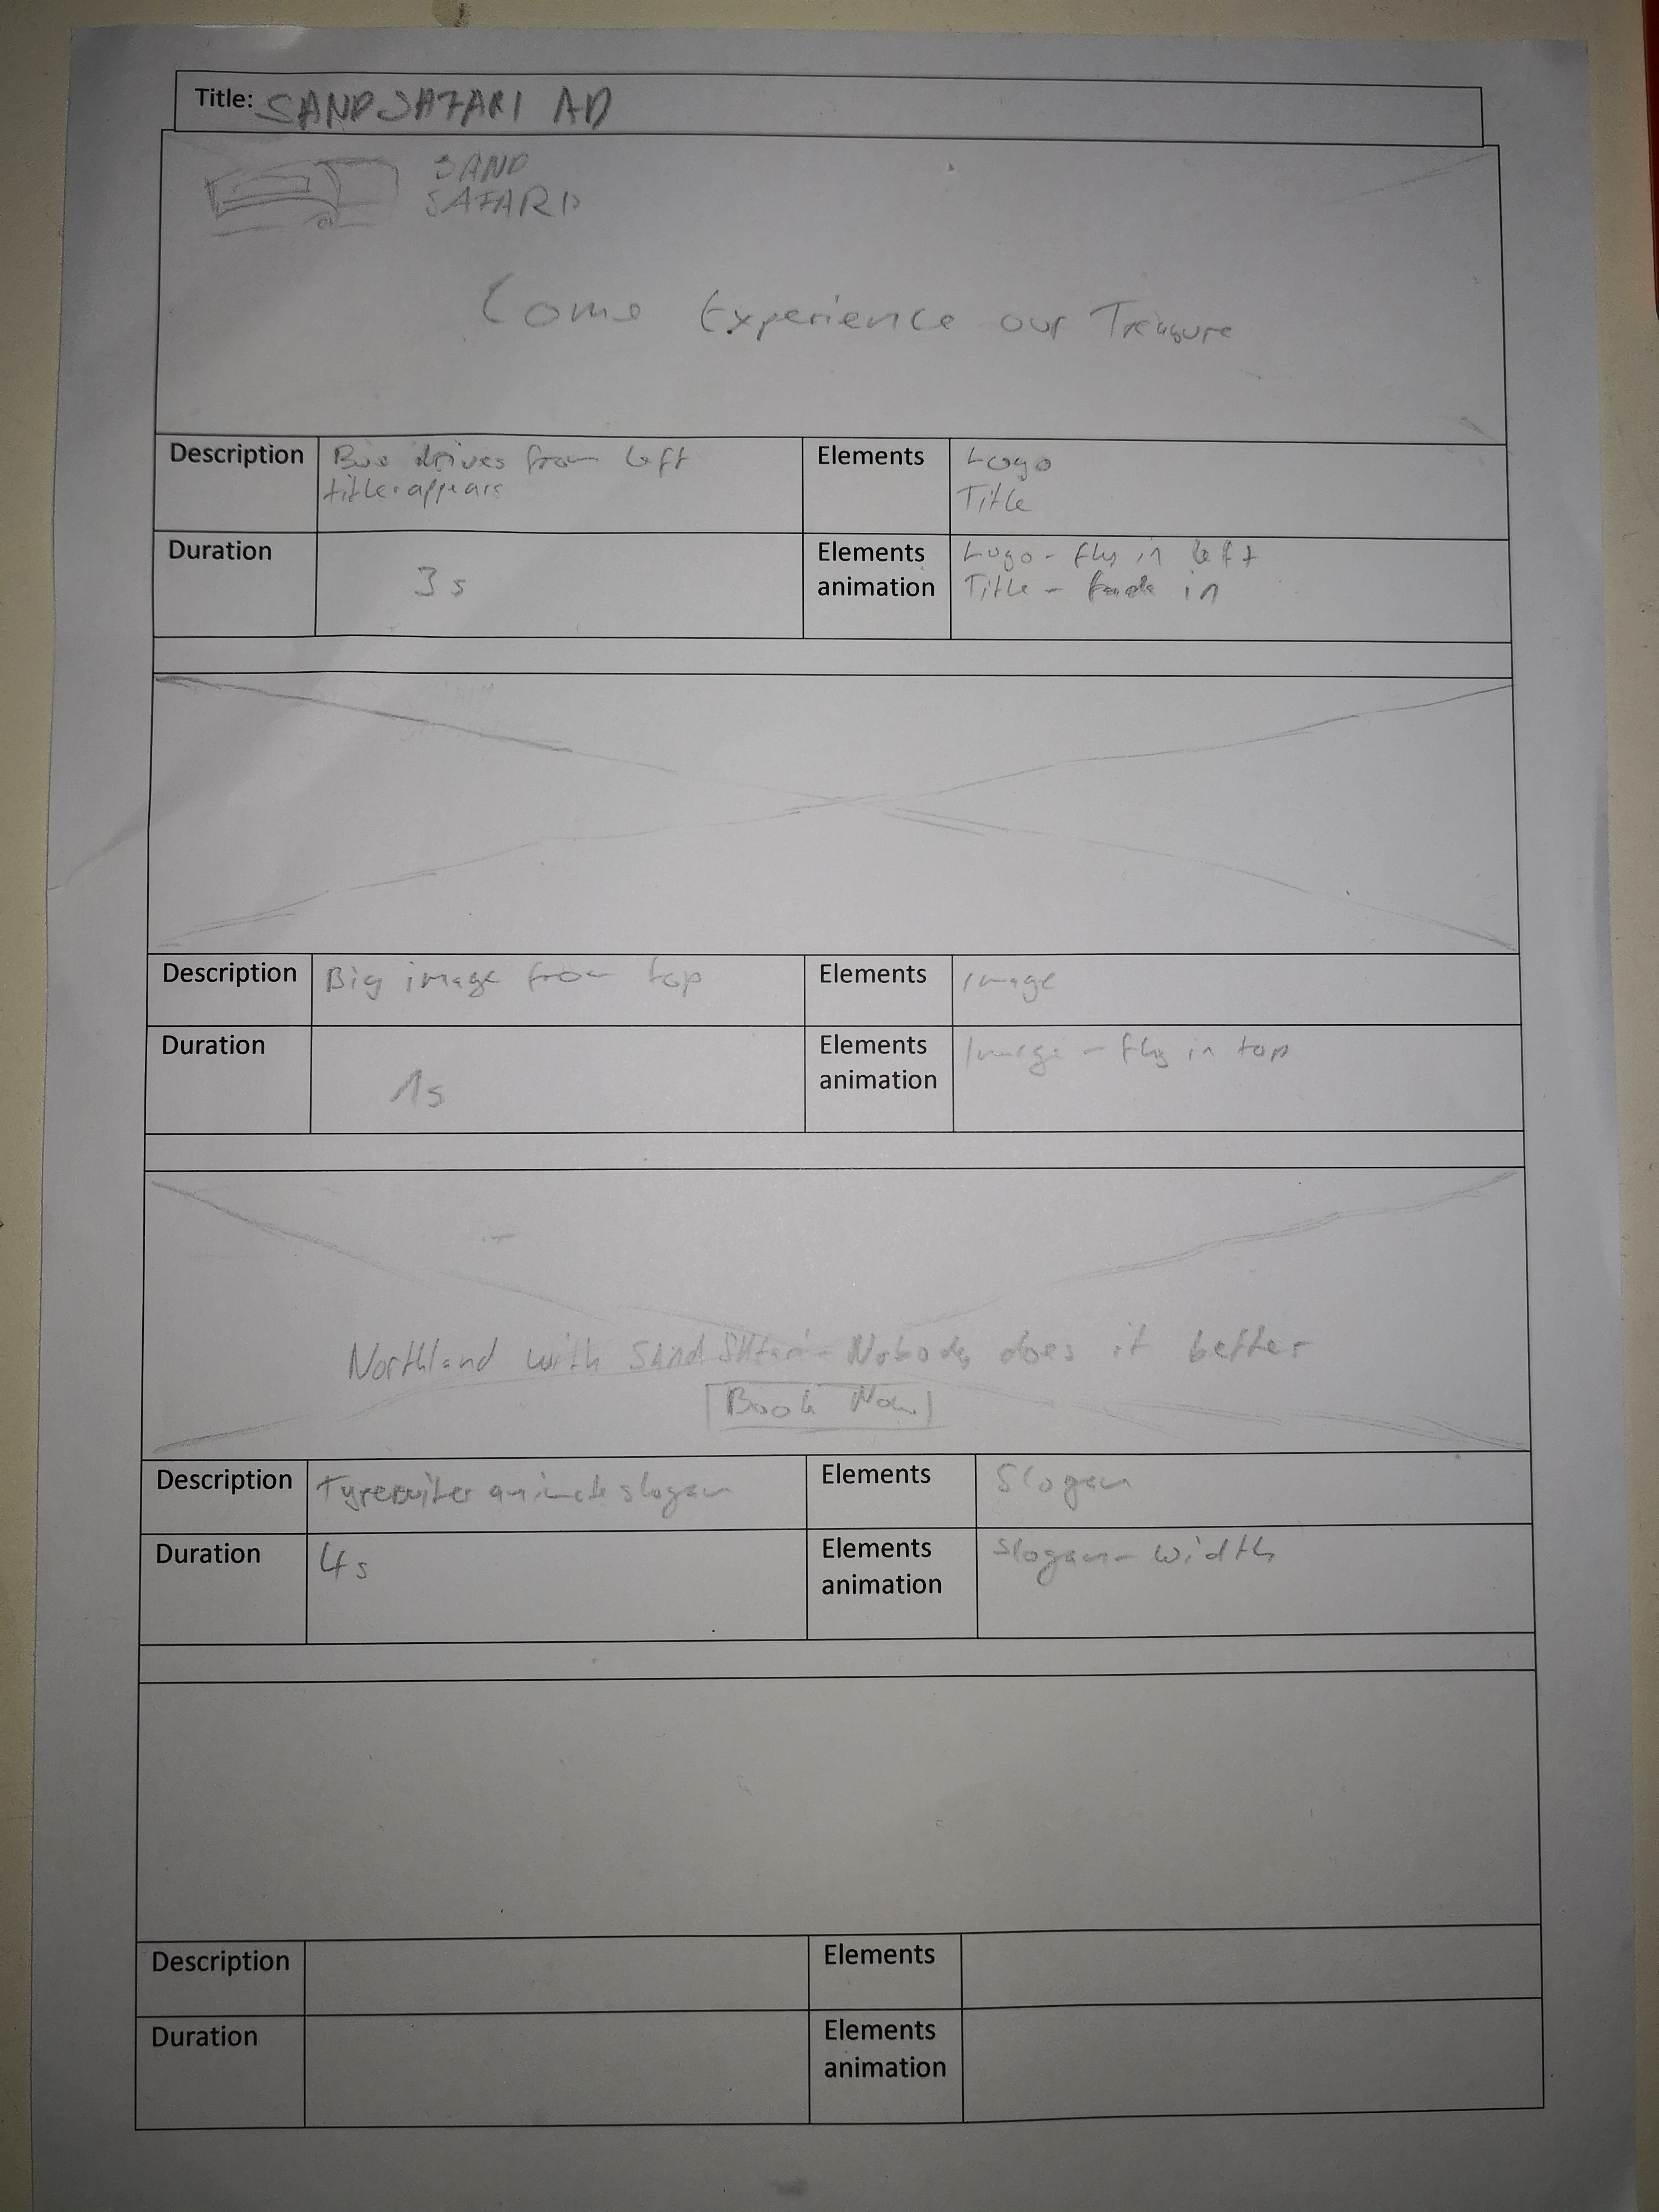 Title: SANDSAFARI AD
SAND
SAFARIS
Come Experience our Treasure
Description Bus drives from left
title appears
Elements Logo
Title
Duration 3s
Elements animation Logo - fly in left
Title - fade in
Description Big image from top
Elements Image
Duration 1s
Elements animation Image - fly in top
Northland with SAND SAfari - Nobody does it better
Book Now
Description Typewriter animate slogan
Elements Slogan
Duration 4s
Elements animation Slogan - width
Description
Elements
Duration
Elements animation